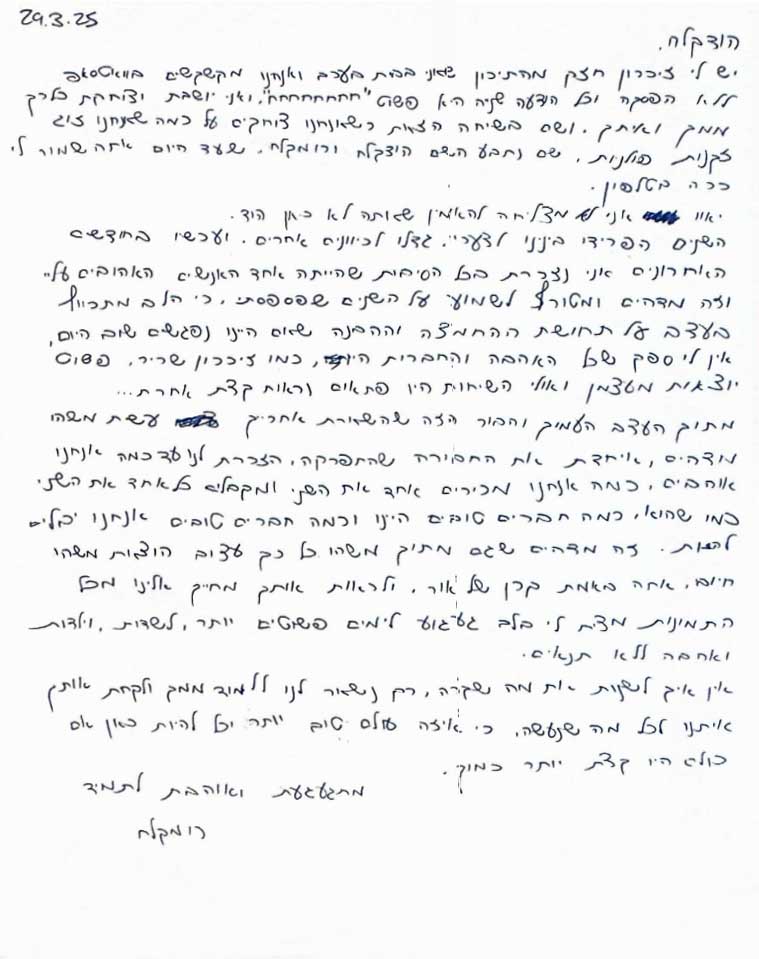 29.3.25
הודקלח.
יש לי זיכרון חזק מהתיכון שאני בבית בערב ואנחנו מקשקשים בוואטסאפ
ללא הפסקה וכל הודעה שניה היא פשוט "חחחחחחחח", ואני יושבת וצוחקת כל כך
ממך ואיתך. ושם בשיחה הזאת כשאנחנו צוחקים על כמה שאנחנו זוג
זקנות פולניות, שם נטבע השם הודקלח ורומקלח. שעד היום אתה שמור לי
ככה בטלפון.
יאוו אני לא מצליחה להאמין שאתה לא כאן הוד.
השנים הפרידו בינינו לצערי, גדלנו לכיוונים אחרים. ועכשיו בחודשים
האחרונים אני נזכרת בכל הסיבות שהיית אחד האנשים האהובים עליי
וזה מדהים ומטורף לשמוע על השנים שפספסתי, כי הלב מתכווץ
בעצב על תחושת ההחמצה וההבנה שאם היינו נפגשים שוב היום,
אין לי ספק שכל האהבה והחברות היו, כמו זיכרון שריר, פשוט
יוצאות מעצמן ואולי השיחות היו פתאום נראות קצת אחרת...
מתוך העצב העמוק והבור הזה שהשארת אחריך עשית משהו
מדהים, איחדת את החבורה שהתפרקה, הזכרת לנו עד כמה אנחנו
אוהבים, כמה אנחנו מכירים אחד את השני ומקבלים כל אחד את השני
כמו שהוא, כמה חברים טובים היינו וכמה חברים טובים אנחנו יכולים
להיות. זה מדהים שגם מתוך משהו כל כך עצוב הוצאת משהו
חיובי, אתה באמת קרן של אור, ולראות אותך מחייך אלינו מכל
התמונות מציף לי בלב געגוע לימים פשוטים יותר, לשדות, וילדות
ואהבה ללא תנאים.
אין איך לשנות את מה שקרה, רק נשאר לנו ללמוד ממך ולקחת אותך
איתנו לכל מה שנעשה, כי איזה עולם טוב יותר יכל להיות כאן אם
כולנו היו קצת יותר כמוך.
מתגעגעת ואוהבת לתמיד
רומקלח